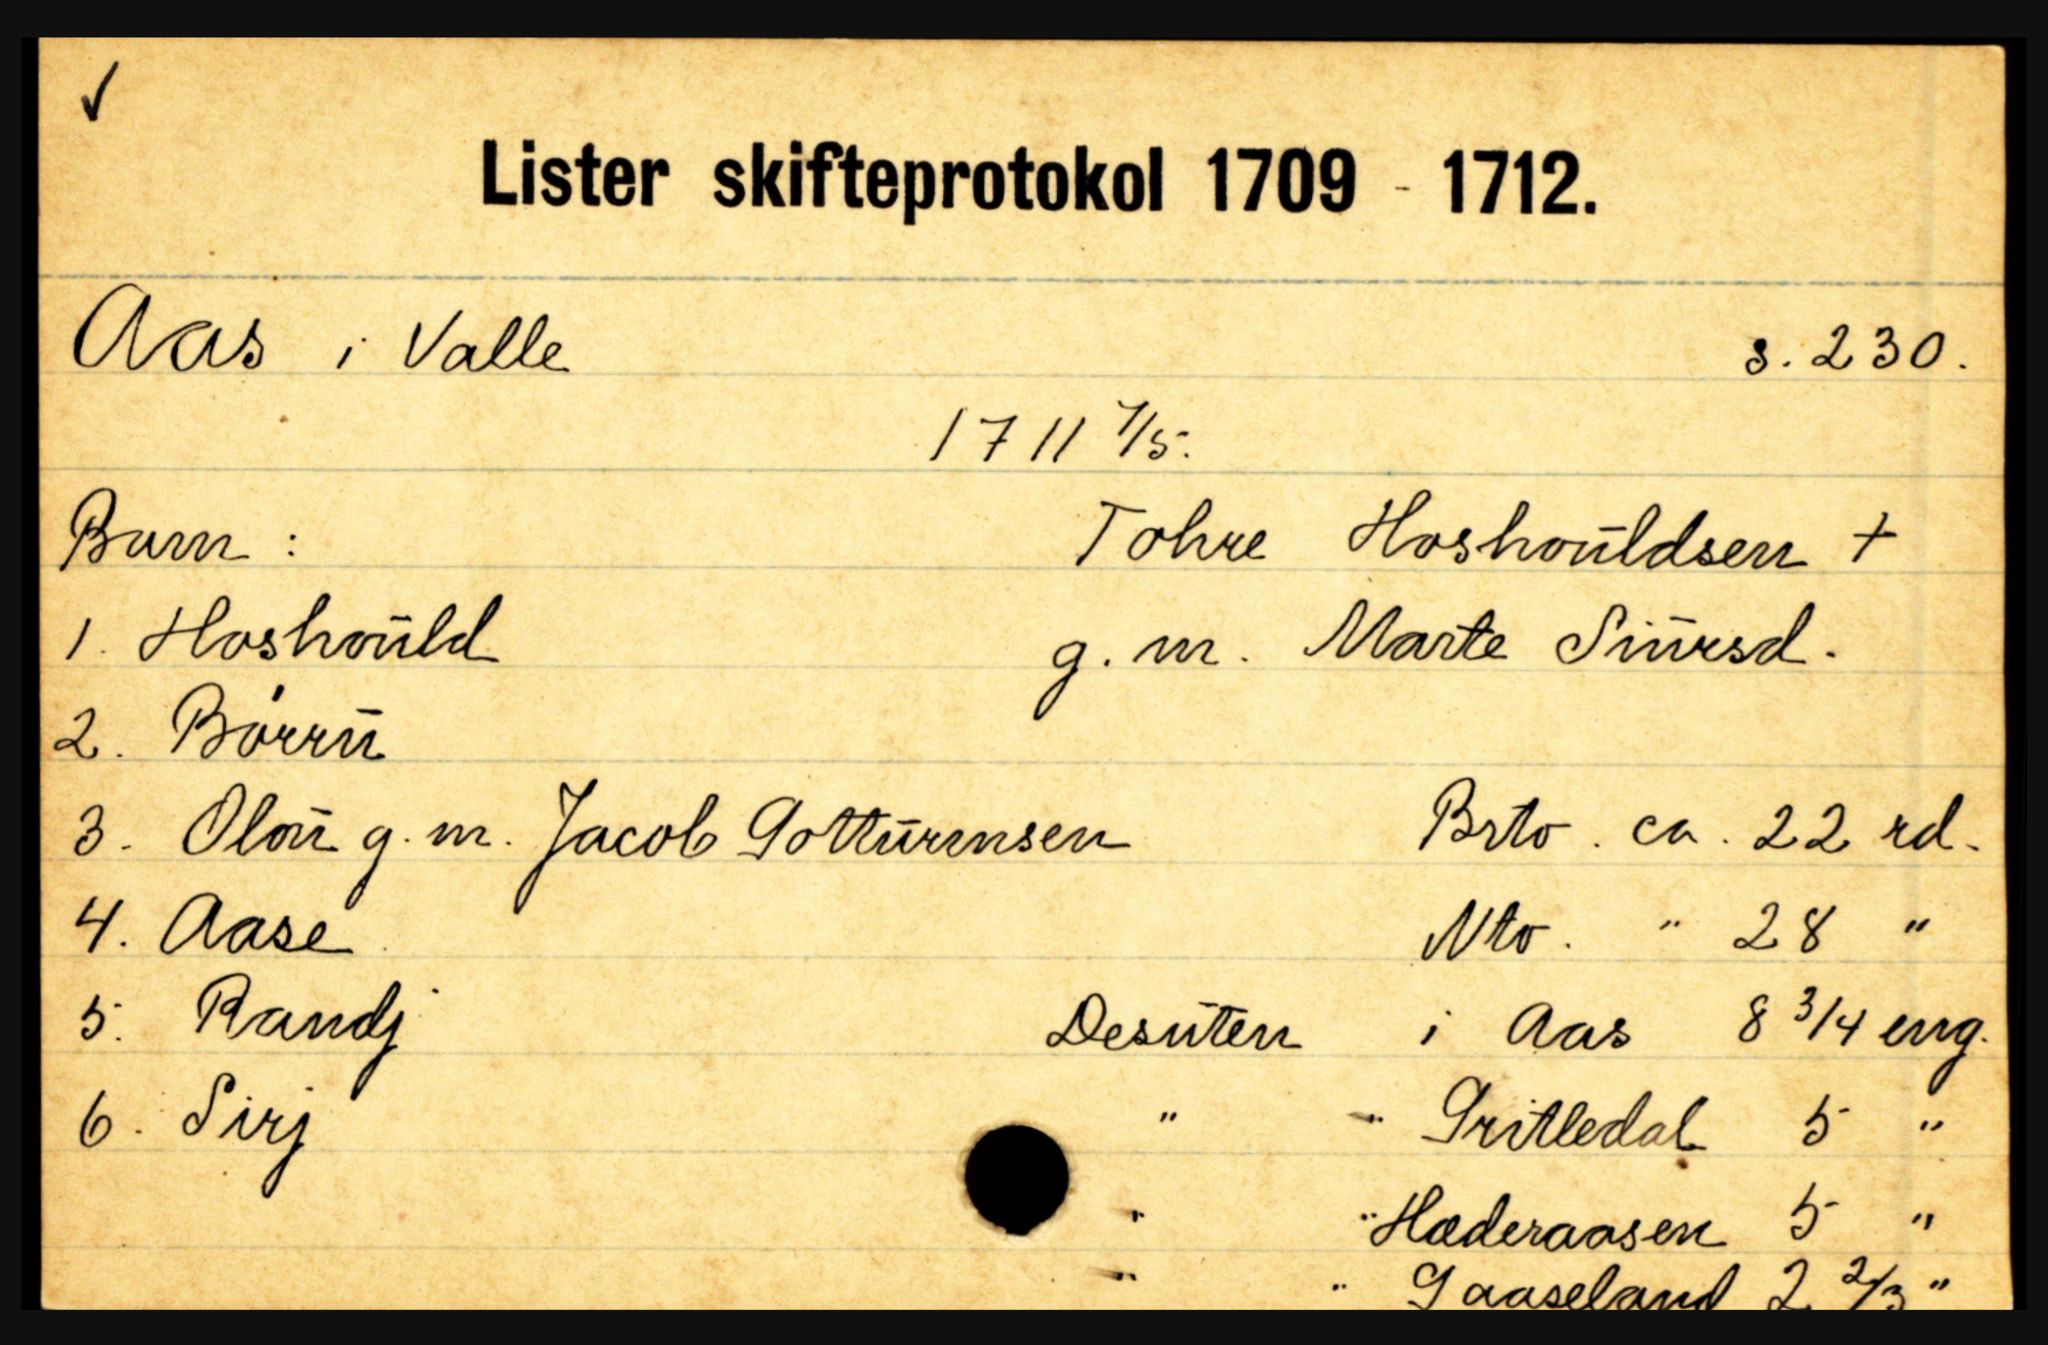 ✓
Lister skifteprotokol 1709 - 1712.
Aas i Valle s. 230.
1711 7/5.
Barn : Tohre Hoshouldsen +
1. Hoshould g. m. Marte Siursd.
2. Børru
3. Olou g. m. Jacob Gotturmsen Brto. ca. 22 rd.
4. Aase Nto. " 28 "
5. Randj Desuten i Aas 8 3/4 eng.
6. Sirj " " Gritledal 5 "
" " Hæderaasen 5 "
" " Gaaseland 2 2/3 "